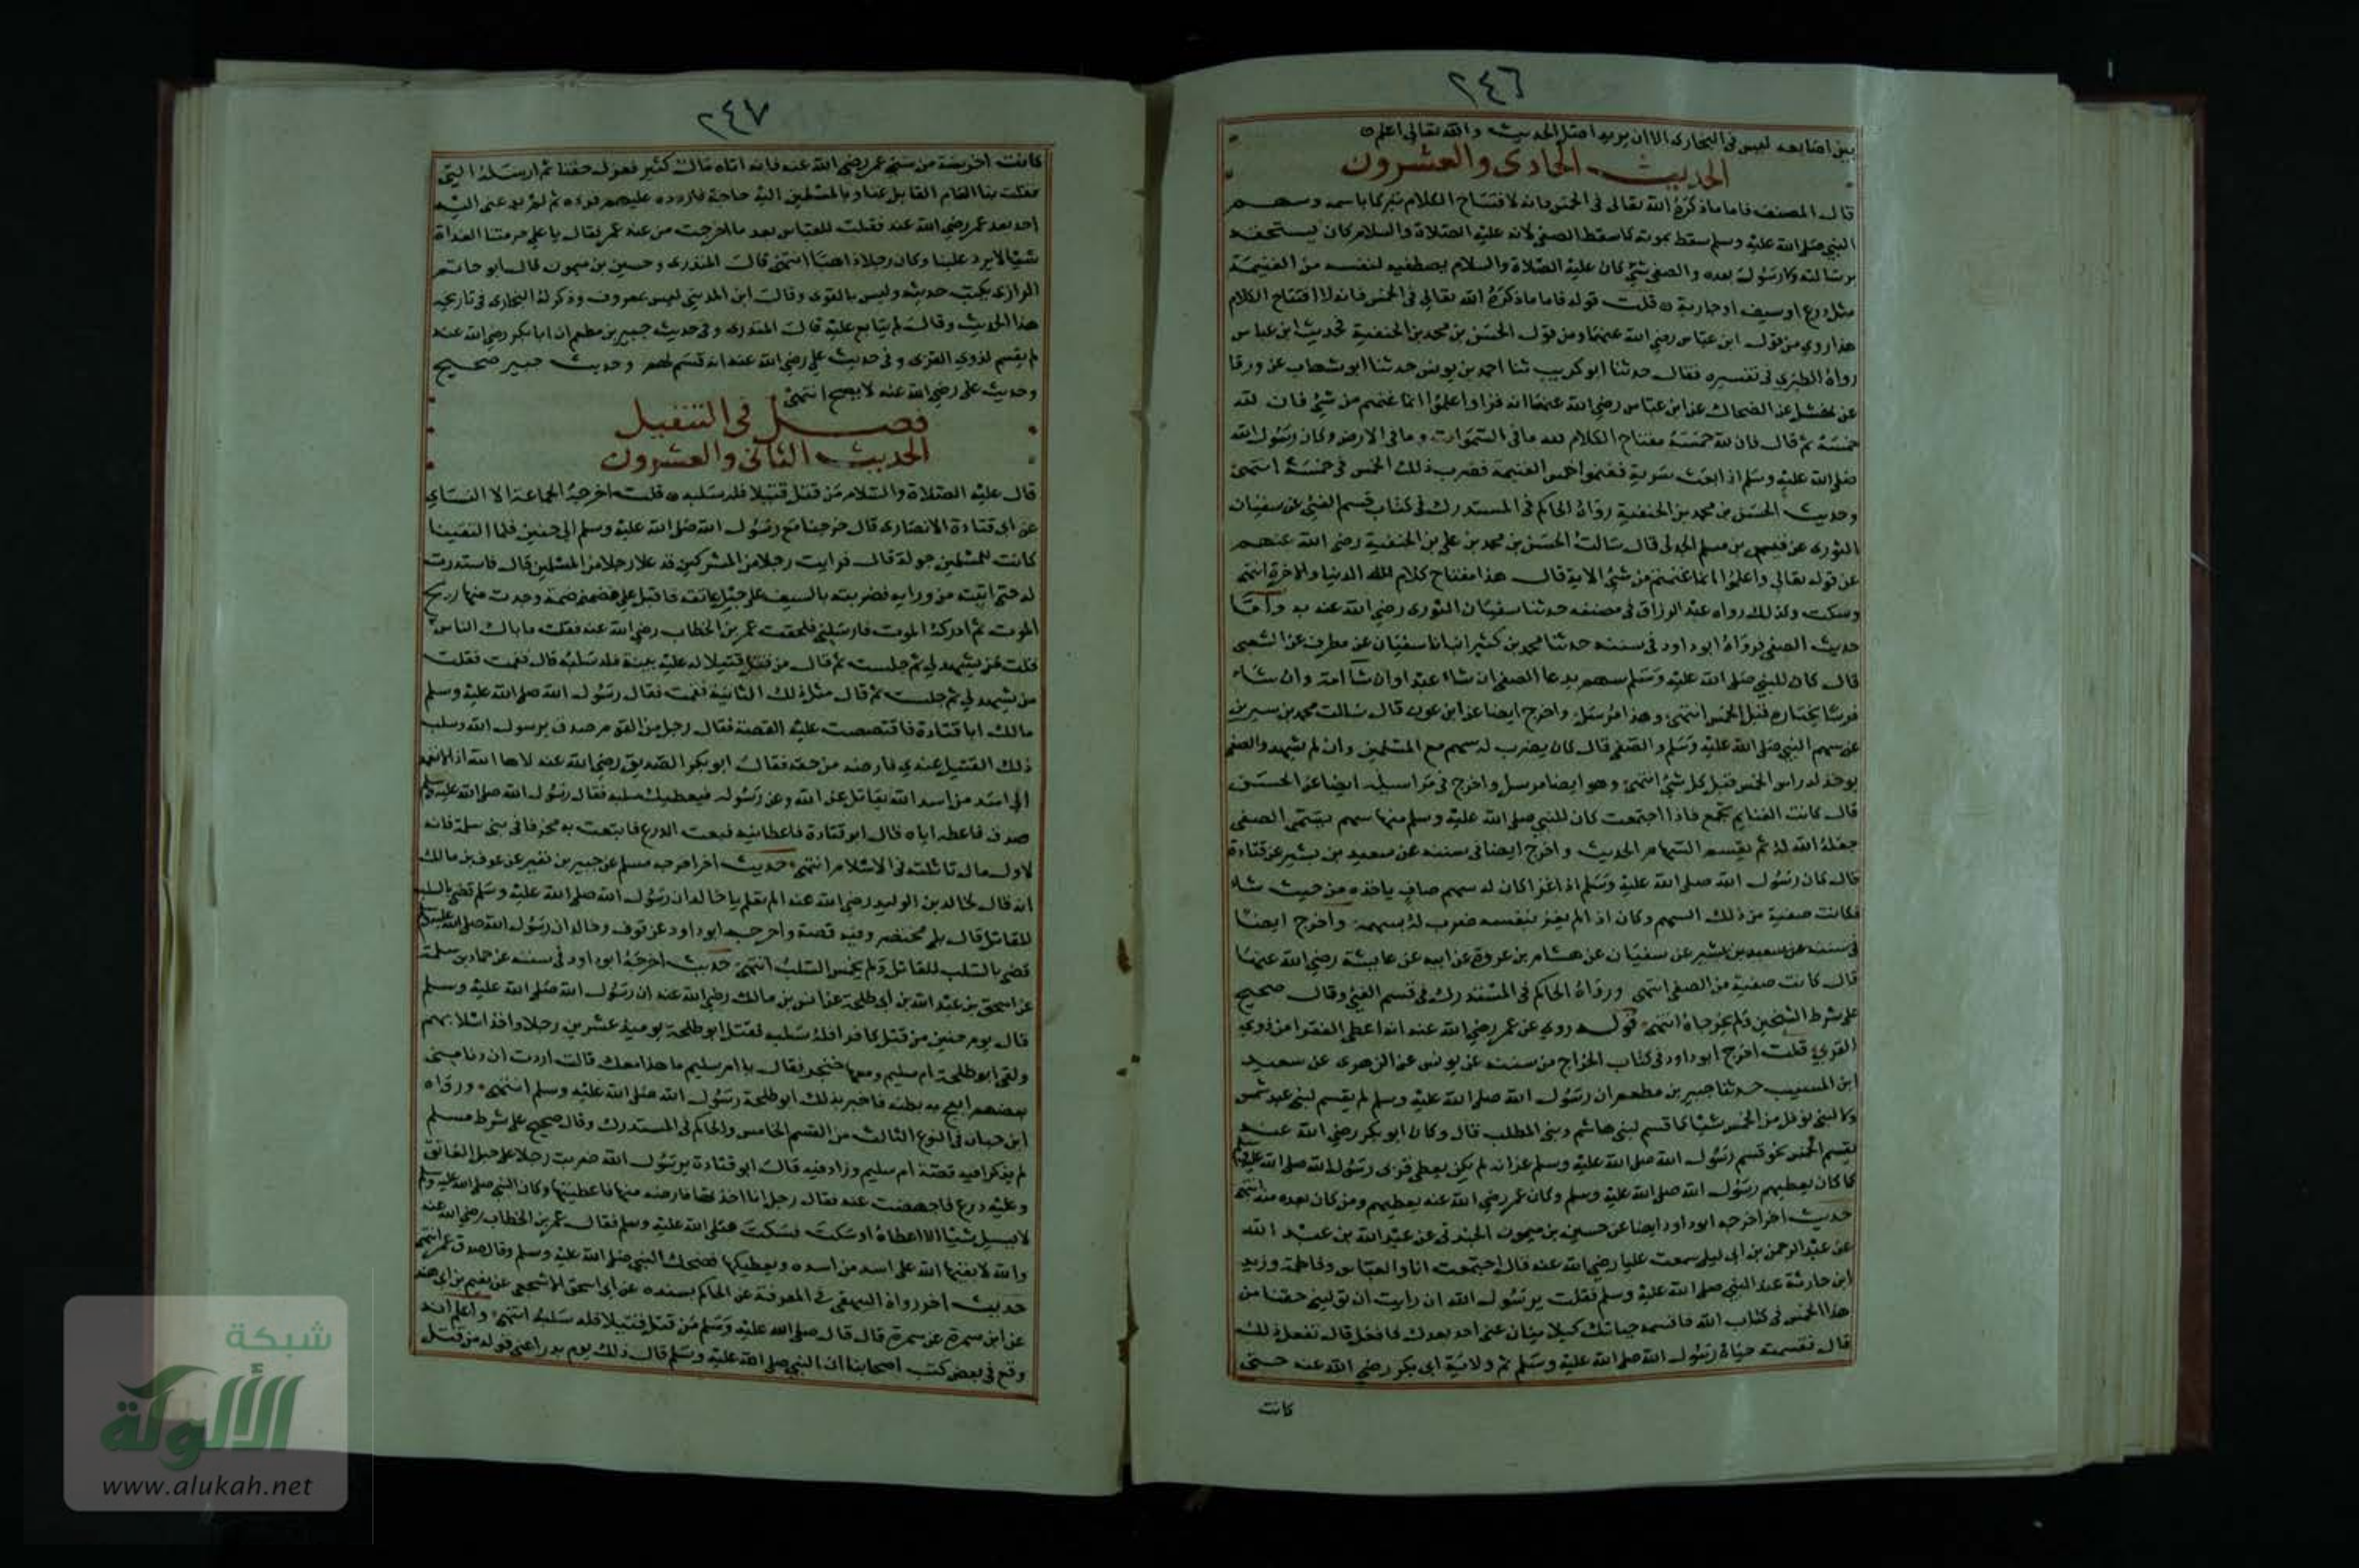 ٢٤٦
بين اصابعه ليس في البخارى الا ان يريد اصل الحديث والله تعالى اعلم
الحديث الحادى والعشرون
قال المصنف فاما ما ذكره الله تعالى في الخمس فانه لافتتاح الكلام تبركا باسمه وسهم
النبي صلى الله عليه وسلم سقط بموته كما سقط الصفي لانه عليه الصلاة والسلام كان يستحقه
برسالته ولا رسول بعده والصفي شئ كان عليه الصلاة والسلام يصطفيه لنفسه من الغنيمة
مثل درع او سيف او جارية قلت قوله فاما ما ذكره الله تعالى في الخمس فانه لافتتاح الكلام
هذا روي من قول ابن عباس رضي الله عنهما ومن قول الحسن بن محمد بن الحنفية فحديث ابن عباس
رواه الطبري في تفسيره فقال حدثنا ابو كريب ثنا احمد بن يونس حدثنا ابو شهاب عن ورقا
عن نهشل عن الضحاك عن ابن عباس رضي الله عنهما انه قرا واعلموا انما غنمتم من شئ فان لله
خمسه ثم قال فان لله خمسه مفتاح الكلام لله ما في السموات وما في الارض وكان رسول الله
صلى الله عليه وسلم اذا بعث سرية فغنموا خمس الغنيمة فضرب ذلك الخمس في خمسة انتهى
وحديث الحسن بن محمد بن الحنفية رواه الحاكم في المستدرك في كتاب قسم الفئ عن سفيان
الثورى عن قيس بن مسلم الجدلى قال سالت الحسن بن محمد بن علي بن الحنفية رضي الله عنهم
عن قوله تعالى واعلموا انما غنمتم من شئ الاية قال هذا مفتاح كلام لله الدنيا والاخرة انتهى
وسكت وكذلك رواه عبد الرزاق في مصنفه حدثنا سفيان الثورى رضي الله عنه به واما
حديث الصفي فرواه ابو داود في سننه حدثنا محمد بن كثير انبانا سفيان عن مطرف عن الشعبى
قال كان للنبي صلى الله عليه وسلم سهم يدعا الصفي ان شاء عبدا وان شا امة وان شاء
فرسا يختاره قبل الخمس انتهى وهذا مرسل واخرج ايضا عن ابن عون قال سالت محمد بن سيرين
عن سهم النبي صلى الله عليه وسلم والصفي قال كان يضرب له سهم مع المسلمين وان لم يشهد والصفي
يوخذ له راس الخمس قبل كل شئ انتهى وهو ايضا مرسل واخرج في مراسيله ايضا عن الحسن
قال كانت الغنايم تجمع فاذا اجتمعت كان للنبي صلى الله عليه وسلم منها سهم يسمى الصفي
جعله الله له ثم يقسم السهام الحديث واخرج ايضا في سننه عن سعيد بن بشير عن قتادة
قال كان رسول الله صلى الله عليه وسلم اذا غزا كان له سهم صاف ياخذه من حيث شاء
فكانت صفية من ذلك السهم وكان اذا لم يغز بنفسه ضرب له بسهمه واخرج ايضا
في سننه عن سعيد بن بشير عن سفيان عن هشام بن عروة عن ابيه عن عايشة رضي الله عنها
قال كانت صفية من الصفي انتهى ورواه الحاكم في المستدرك في قسم الفئ وقال صحيح
على شرط الشيخين ولم يخرجاه انتهى قوله روي عن عمر رضي الله عنه انه اعطى الفقرا من ذوي
القربى قلت اخرج ابو داود في كتاب الخراج من سننه عن يونس عن الزهرى عن سعيد
ابن المسيب حدثنا جبير بن مطعم ان رسول الله صلى الله عليه وسلم لم يقسم لبنى عبد شمس
ولا لبنى نوفل من الخمس شيئا كما قسم لبنى هاشم وبنى المطلب قال وكان ابو بكر رضي الله عنه
يقسم الخمس نحو قسم رسول الله صلى الله عليه وسلم غير انه لم يكن يعطى قربى رسول الله صلى الله عليه وسلم
كما كان يعطيهم رسول الله صلى الله عليه وسلم وكان عمر رضي الله عنه يعطيهم ومن كان بعده منه انتهى
حديث اخر اخرجه ابو داود ايضا عن حسين بن ميمون الخندقى عن عبد الله بن عبد الله
عن عبد الرحمن بن ابى ليلى سمعت عليا رضي الله عنه قال اجتمعت انا والعباس وفاطمة وزيد
ابن حارثة عند النبي صلى الله عليه وسلم فقلت يرسول الله ان رايت ان تولينى حقنا من
هذا الخمس في كتاب الله فاقسمه حياتك كيلا ينازعنى احد بعدك فافعل قال ففعل ذلك
قال فقسمته حياة رسول الله صلى الله عليه وسلم ثم ولاية ابى بكر رضي الله عنه حتى
كانت
٢٤٧
كانت اخر سنة من سنى عمر رضي الله عنه فانه اتاه مال كثير فعزل حقنا ثم ارسله الىّ
فقلت بنا العام القابل غنا وبالمسلمين اليه حاجة فاردده عليهم فرده ثم لم يدعنى اليه
احد بعد عمر رضي الله عنه فلقيت العباس بعد ما خرجت من عند عمر فقال يا على حرمتنا الغداة
شيئا لا يرد علينا وكان رجلا داهيا انتهى قال المنذرى وحسين بن ميمون قال ابو حاتم
الرازى يكتب حديثه وليس بالقوى وقال ابن المدينى ليس بمعروف وذكر له البخارى في تاريخه
هذا الحديث وقال لم يتابع عليه قال المنذرى وفي حديث جبير بن مطعم ان ابا بكر رضي الله عنه
لم يقسم لذوي القربى وفي حديث علي رضي الله عنه انه قسم لهم وحديث جبير صحيح
وحديث على رضي الله عنه لا يصح انتهى
فصل في التنفيل
الحديث الثانى والعشرون
قال عليه الصلاة والسلام من قتل قتيلا فله سلبه قلت اخرجه الجماعة الا النساى
عن ابى قتادة الانصارى قال خرجنا مع رسول الله صلى الله عليه وسلم الى حنين فلما التقينا
كانت للمسلمين جولة قال فرايت رجلا من المشركين قد علا رجلا من المسلمين قال فاستدرت
له حتى اتيته من ورايه فضربته بالسيف على حبل عاتقه فاقبل علي فضمنى ضمة وجدت منها ريح
الموت ثم ادركه الموت فارسلنى فلحقت عمر بن الخطاب رضي الله عنه فقلت ما بال الناس
فقلت من يشهد لي ثم جلست ثم قال من قتل قتيلا له عليه بينة فله سلبه قال فقمت فقلت
من يشهد لي ثم جلست ثم قال مثل ذلك الثانية فقمت فقال رسول الله صلى الله عليه وسلم
مالك ابا قتادة فاقتصصت عليه القصة فقال رجل من القوم صدق يرسول الله وسلب
ذلك القتيل عندي فارضه من حقه فقال ابو بكر الصديق رضي الله عنه لاها الله اذا لا نعمد
الى اسد من اسد الله يقاتل عن الله وعن رسوله فيعطيك سلبه فقال رسول الله صلى الله عليه وسلم
صدق فاعطه اياه قال ابو قتادة فاعطانيه فبعت الدرع فابتعت به مخرفا في بنى سلمة فانه
لاول مال تاثلته في الاسلام انتهى حديث اخر اخرجه مسلم عن جبير بن نفير عن عوف بن مالك
انه قال لخالد بن الوليد رضي الله عنه الم تعلم يا خالد ان رسول الله صلى الله عليه وسلم قضى بالسلب
للقاتل قال بلى مختصر وفيه قصة واخرجه ابو داود عن عوف وخالد ان رسول الله صلى الله عليه وسلم
قضى بالسلب للقاتل ولم يخمس السلب انتهى حديث اخرجه ابو داود في سننه عن حماد بن سلمة
عن اسحق بن عبد الله بن ابى طلحة عن انس بن مالك رضي الله عنه ان رسول الله صلى الله عليه وسلم
قال يوم حنين من قتل كافرا فله سلبه فقتل ابو طلحة يوميذ عشرين رجلا واخذ اسلابهم
ولقى ابو طلحة ام سليم ومعها خنجر فقال يا ام سليم ما هذا معك قالت اردت ان دنا منى
بعضهم ابعج به بطنه فاخبر بذلك ابو طلحة رسول الله صلى الله عليه وسلم انتهى ورواه
ابن حبان في النوع الثالث من القسم الخامس والحاكم في المستدرك وقال صحيح على شرط مسلم
لم يذكرا فيه قصة ام سليم وزاد فيه قال ابو قتادة يرسول الله ضربت رجلا على حبل العاتق
وعليه درع فاجهضت عنه فقال رجل انا اخذتها فارضه منها فاعطنيها وكان النبي صلى الله عليه وسلم
لا يسيل شيئا الا اعطاه او سكت فسكت صلى الله عليه وسلم فقال عمر بن الخطاب رضي الله عنه
والله لا يفيها الله على اسد من اسده ويعطيكها فضحك النبي صلى الله عليه وسلم وقال صدق عمر انتهى
حديث اخر رواه البيهقى في المعرفة عن الحاكم بسنده عن ابى اسحق الاشجعى عن نعيم بن ابى هند
عن ابن سمرة عن سمرة قال قال صلى الله عليه وسلم من قتل قتيلا فله سلبه انتهى واعلم انه
وقع في بعض كتب اصحابنا ان النبي صلى الله عليه وسلم قال ذلك يوم بدر اعنى قوله من قتل
شبكة
الألوكة
www.alukah.net